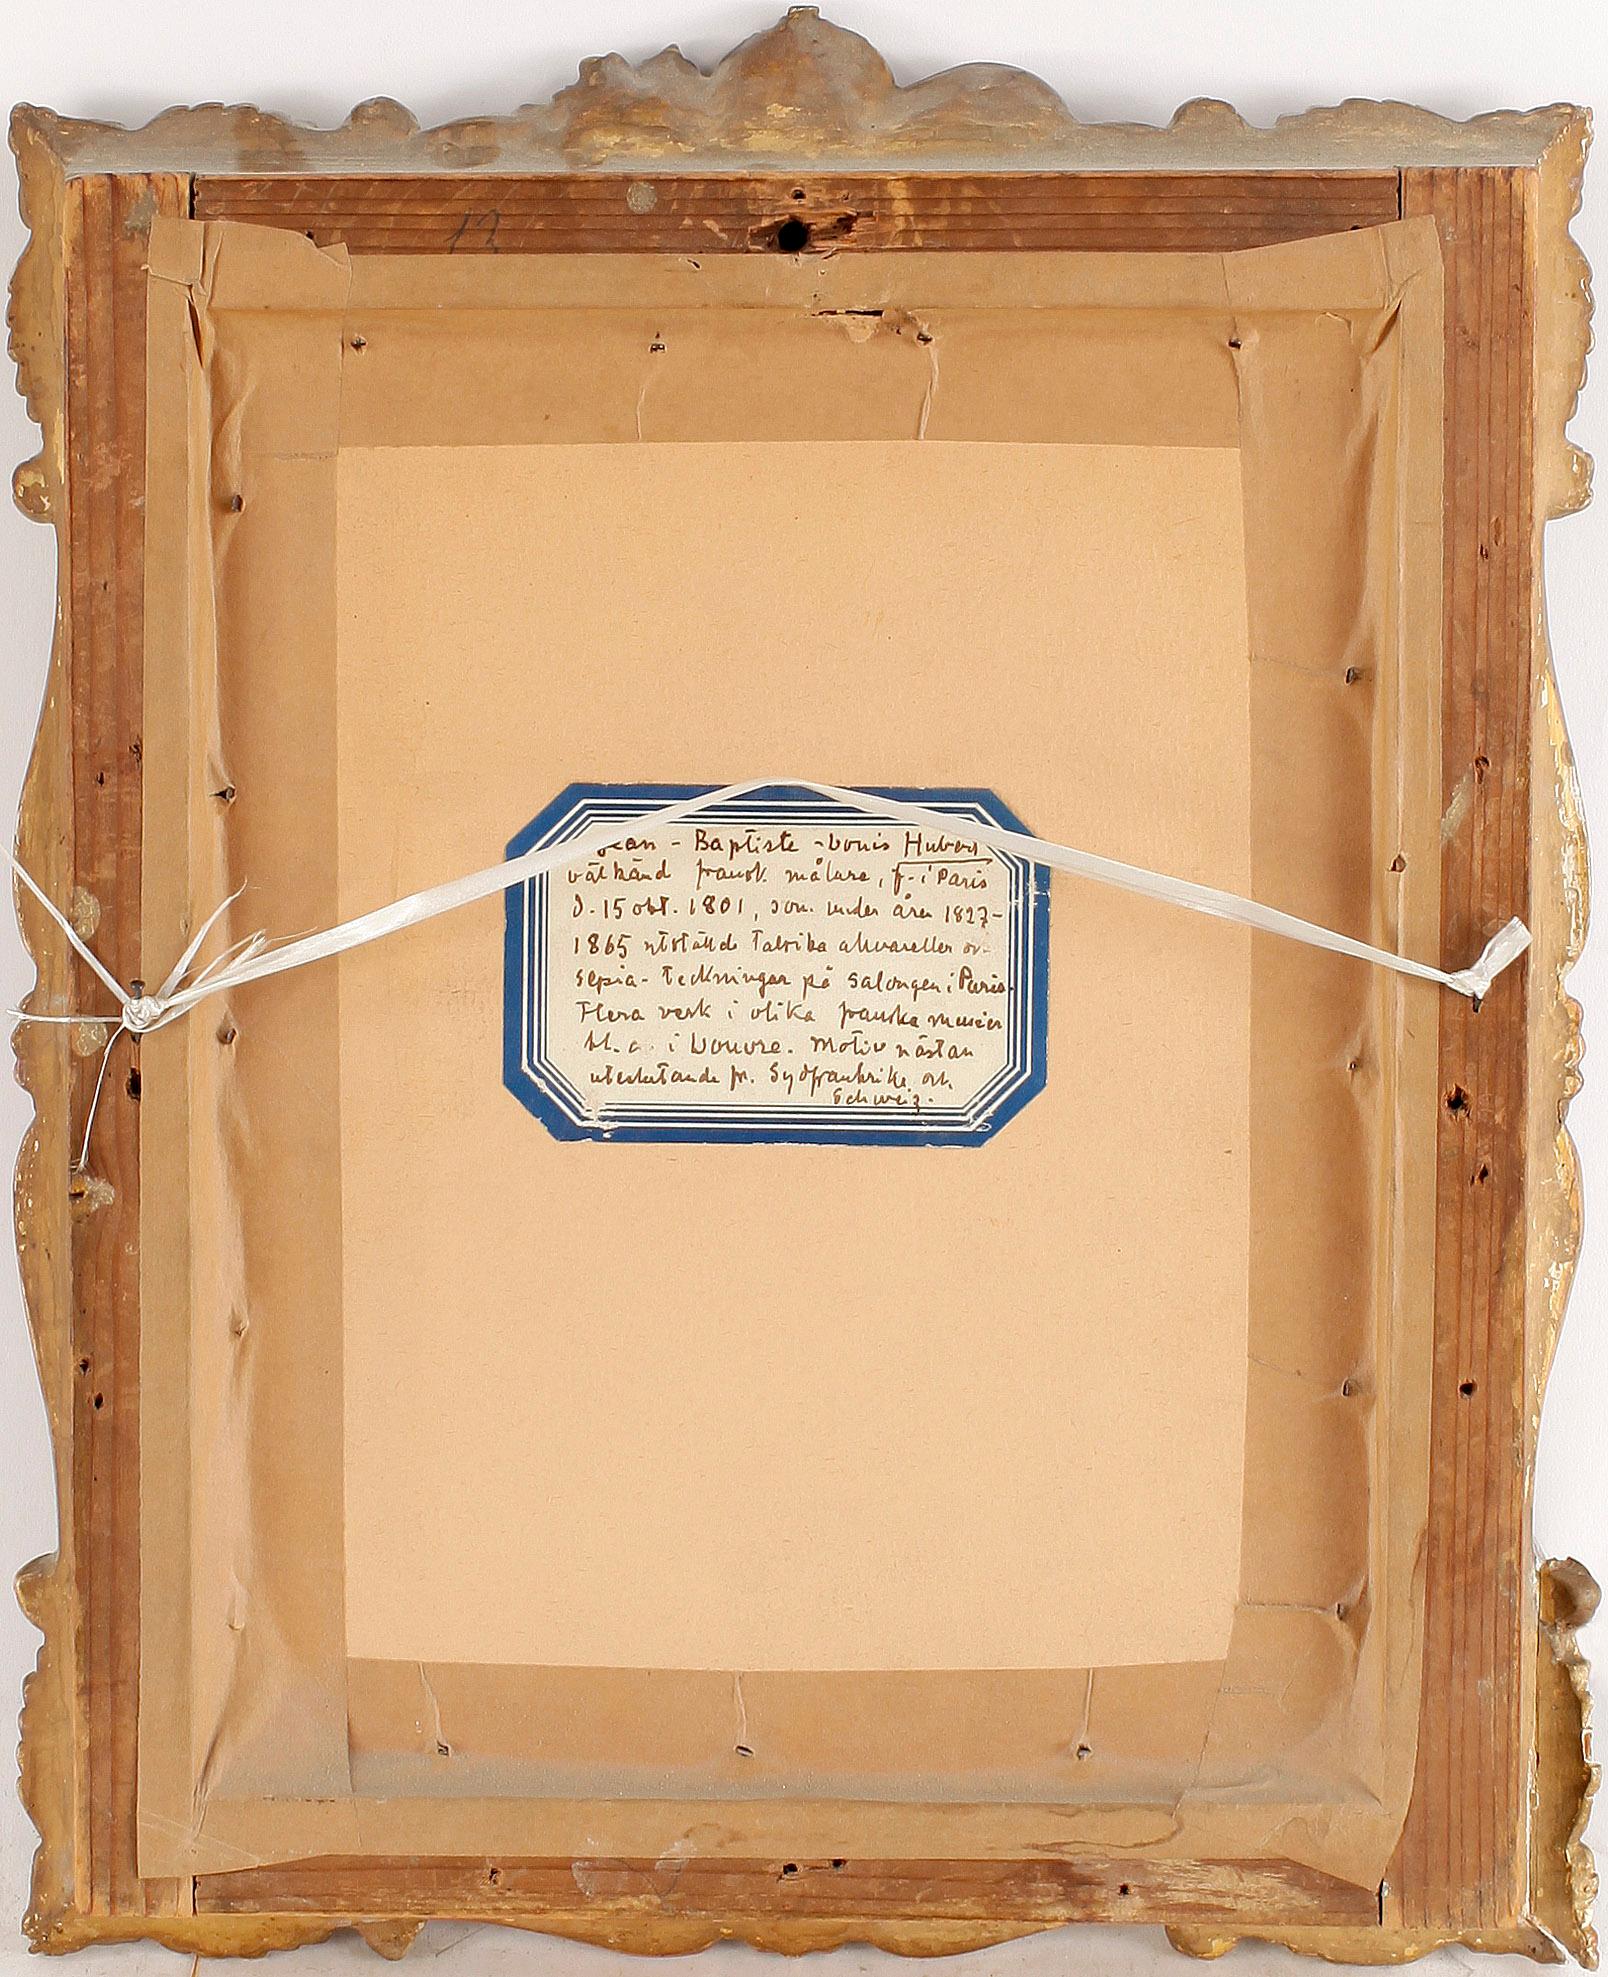 12
Jean - Baptiste - Louis Hubert
välkänd fransk målare, f. i Paris
d. 15 okt. 1801, som under åren 1827-
1865 utställde talrika akvareller och
sepia-teckningar på salongen i Paris.
Flera verk i olika franska muséer
bl. a. i Louvre. Motiv nästan
uteslutande fr. Sydfrankrike och
Schweiz.